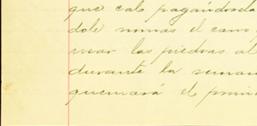 que cale pagándosela
dole normas el carro
vear las piedras al
durante la seman
quemará el primi